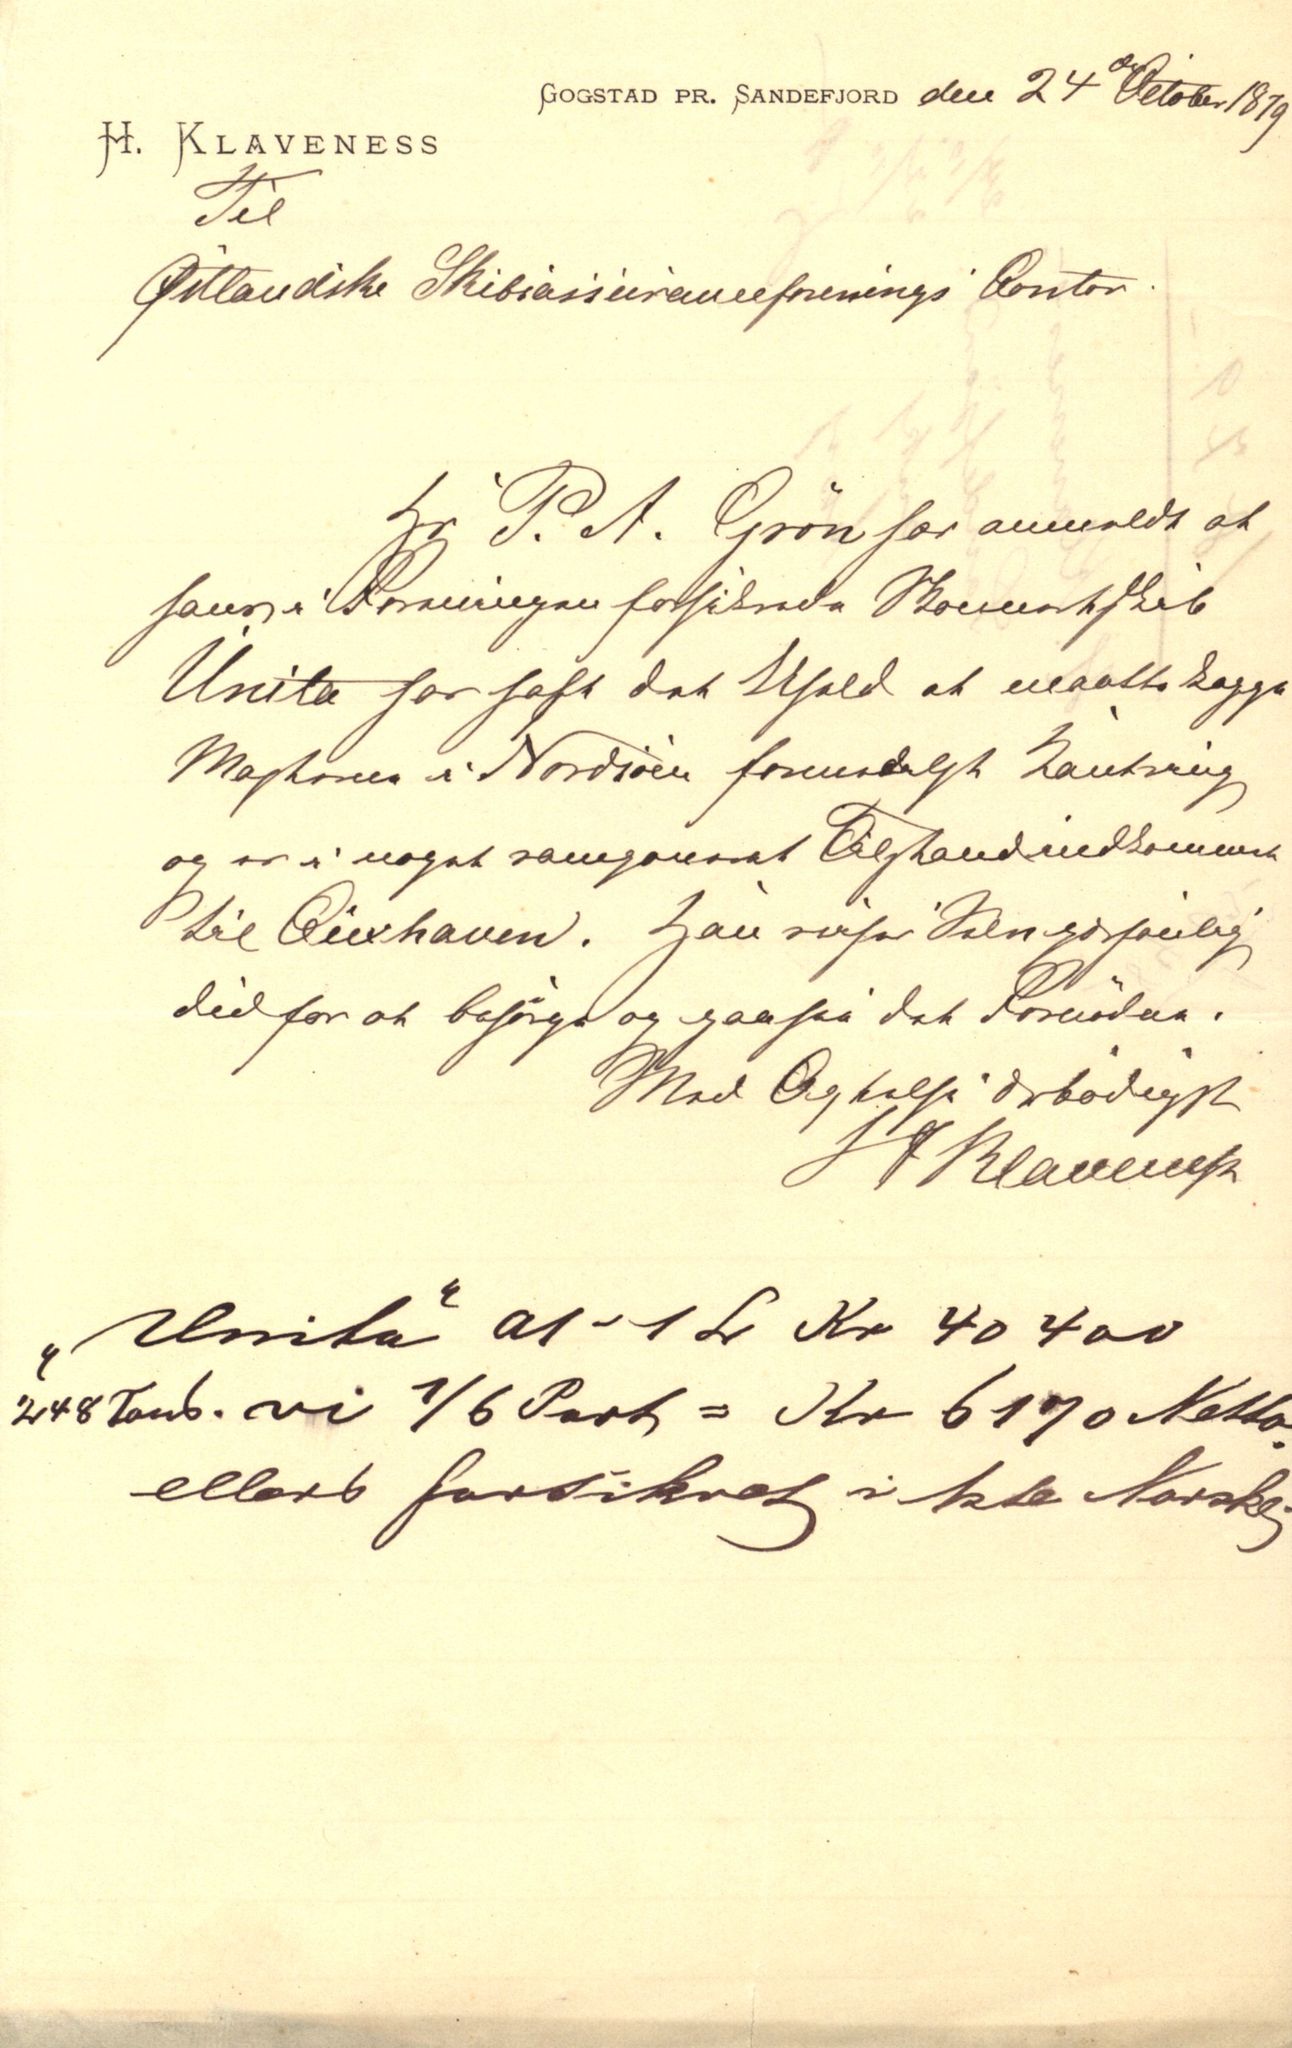 GOGSTAD PR. SANDEFJORD den 24de October 1879
H. KLAVENESS
Til
Østlandske Skibsassuranceforenings Contor.
Hr P. A. Grön har anmeldt at
hans i Foreningen forsikrede Skonnertskib
Unita har haft det Uheld at maatte kappe
Masterne i Nordsöen formedelst Læntring
og er i noget ramponeret Tilstand indkommet
til Cuxhaven. Han reiser Selv
did for at besörge og paase det Fornödne.
Med Agtelse ærbödigst
H Klaveness
"Unita" A1-1 Kr 40 400
248 Tons. vi 1/6 Part = Kr 6170 Netto.
ellers forsikret i Norske